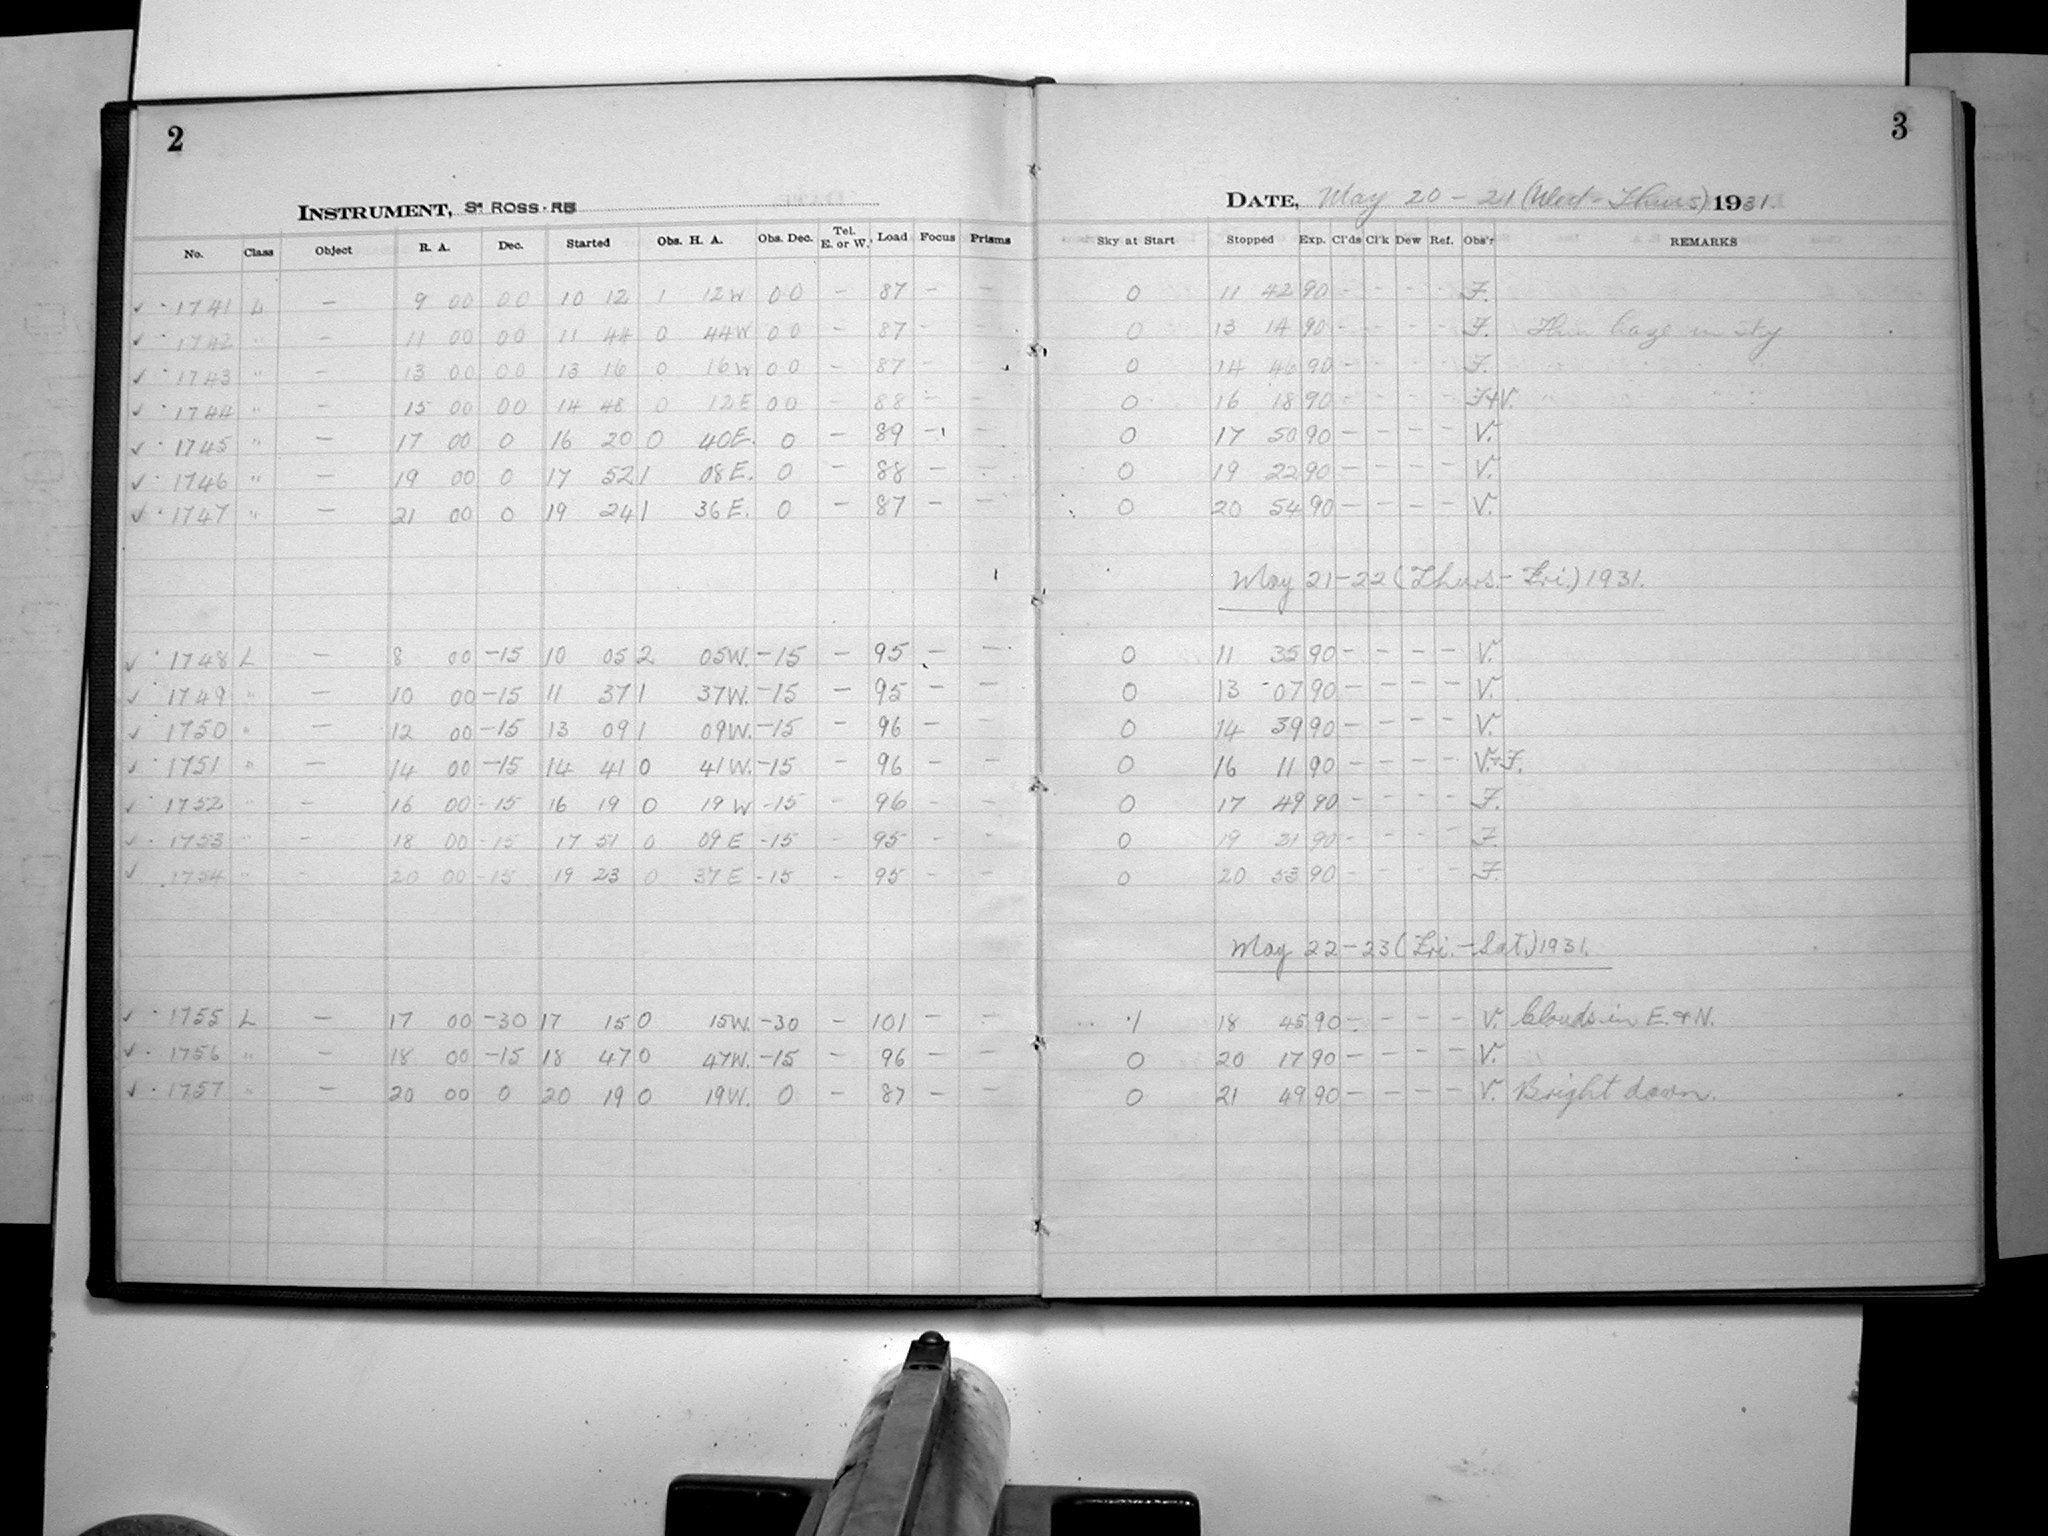 2
INSTRUMENT, Sᴬ ROSS-RB
No. Class Object R. A. Dec. Started Obs. H. A. Obs. Dec. Tel. E. or W. Load Focus Prisms
✓ · 1741 L — 9 00 00 10 12 1 12W 00 — 87 — —
✓ · 1742 " — 11 00 00 11 44 0 44W 00 — 87 — —
✓ · 1743 " — 13 00 00 13 16 0 16W 00 — 87 — —
✓ · 1744 " — 15 00 00 14 48 0 12E 00 — 88 — —
✓ · 1745 " — 17 00 0 16 20 0 40E. 0 — 89 — —
✓ · 1746 " — 19 00 0 17 52 1 08E. 0 — 88 — —
✓ · 1747 " — 21 00 0 19 24 1 36E. 0 — 87 — —
✓ · 1748 L — 8 00 -15 10 05 2 05W. -15 — 95 — —
✓ · 1749 " — 10 00 -15 11 37 1 37W. -15 — 95 — —
✓ · 1750 " — 12 00 -15 13 09 1 09W. -15 — 96 — —
✓ · 1751 " — 14 00 -15 14 41 0 41W. -15 — 96 — —
✓ · 1752 " — 16 00 -15 16 19 0 19W -15 — 96 — —
✓ · 1753 " — 18 00 -15 17 51 0 09E -15 — 95 — —
✓ · 1754 " — 20 00 -15 19 23 0 37E -15 — 95 — —
✓ · 1755 L — 17 00 -30 17 15 0 15W. -30 — 101 — —
✓ · 1756 " — 18 00 -15 18 47 0 47W. -15 — 96 — —
✓ · 1757 " — 20 00 0 20 19 0 19W. 0 — 87 — —
3
DATE, May 20 - 21 (Wed - Thurs) 1931.
Sky at Start Stopped Exp. Cl'ds Cl'k Dew Ref. Obs'r REMARKS
0 11 42 90 — — — — F.
0 13 14 90 — — — — F. Thin haze in sky
0 14 46 90 — — — — F. " " " "
0 16 18 90 — — — — F+V. " " " "
0 17 50 90 — — — — V.
0 19 22 90 — — — — V.
0 20 54 90 — — — — V.
May 21-22 (Thurs.-Fri.) 1931.
0 11 35 90 — — — — V.
0 13 07 90 — — — — V.
0 14 39 90 — — — — V.
0 16 11 90 — — — — V.+F.
0 17 49 90 — — — — F.
0 19 21 90 — — — — F.
0 20 53 90 — — — — F.
May 22-23 (Fri.-Sat.) 1931.
1 18 45 90 — — — — V. Clouds in E. & N.
0 20 17 90 — — — — V.
0 21 49 90 — — — — V. Bright dawn.